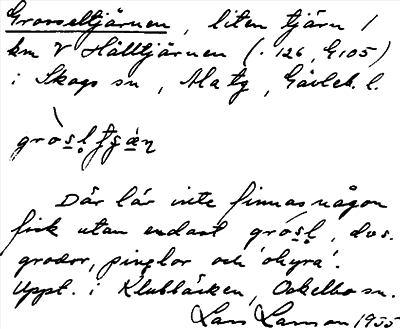 Grosseltjärnen, liten tjärn 1
km V Hälltjärnen (. 126, G105)
i Skogs sn, Ala tg, Gävleb. l.
grosl̥ tjän
Där lär inte finnas någon
fisk utan endast grósl̥, dvs.
grodor, pinglor och 'ohyra'.
Uppt. i Klubbäcken, Ockelbo sn.
Lars Larsson 1955